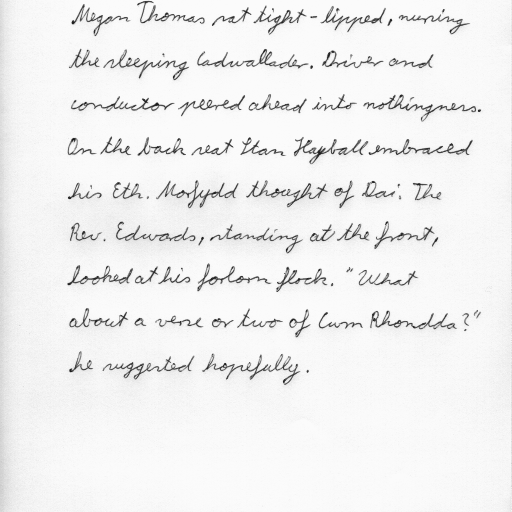 Megan Thomas sat tight-lipped, nursing
the sleeping Cadwallader. Driver and
conductor peered ahead into nothingness.
On the back seat Stan Hayball embraced
his Eth. Morfydd thought of Dai. The
Rev. Edwards, standing at the front,
looked at his forlorn flock. "What
about a verse or two of Cwm Rhondda?"
he suggested hopefully.